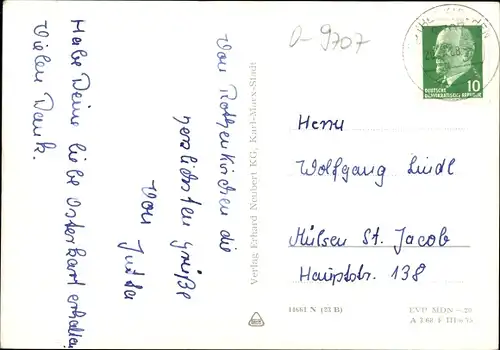 D-9707
DEUTSCHE
DEMOKRATISCHE REPUBLIK
10
Von Rothenkirchen die
herzlichsten Grüße
Von Jutta
Habe Deine liebe Osterkart erhalten
Vielen Dank.
Verlag Erhard Neubert KG, Karl-Marx-Stadt
Herrn
Wolfgang Lindl
Mülsen St. Jacob
Hauptstr. 138
14661 N (23 B)
EVP MDN -.20